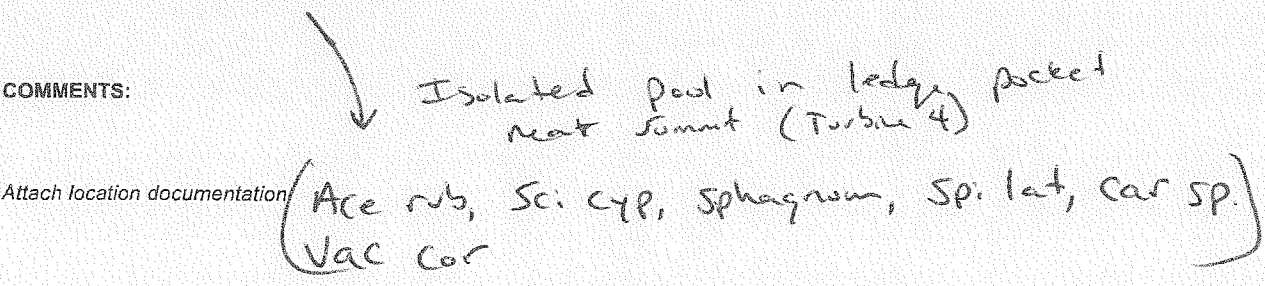 COMMENTS:
Isolated pool in ledgy pocket
near summit (Turbine 4)
Attach location documentation
(Ace rub, Sci cyp, Sphagnum, Spi lat, Car sp.
Vac cor)